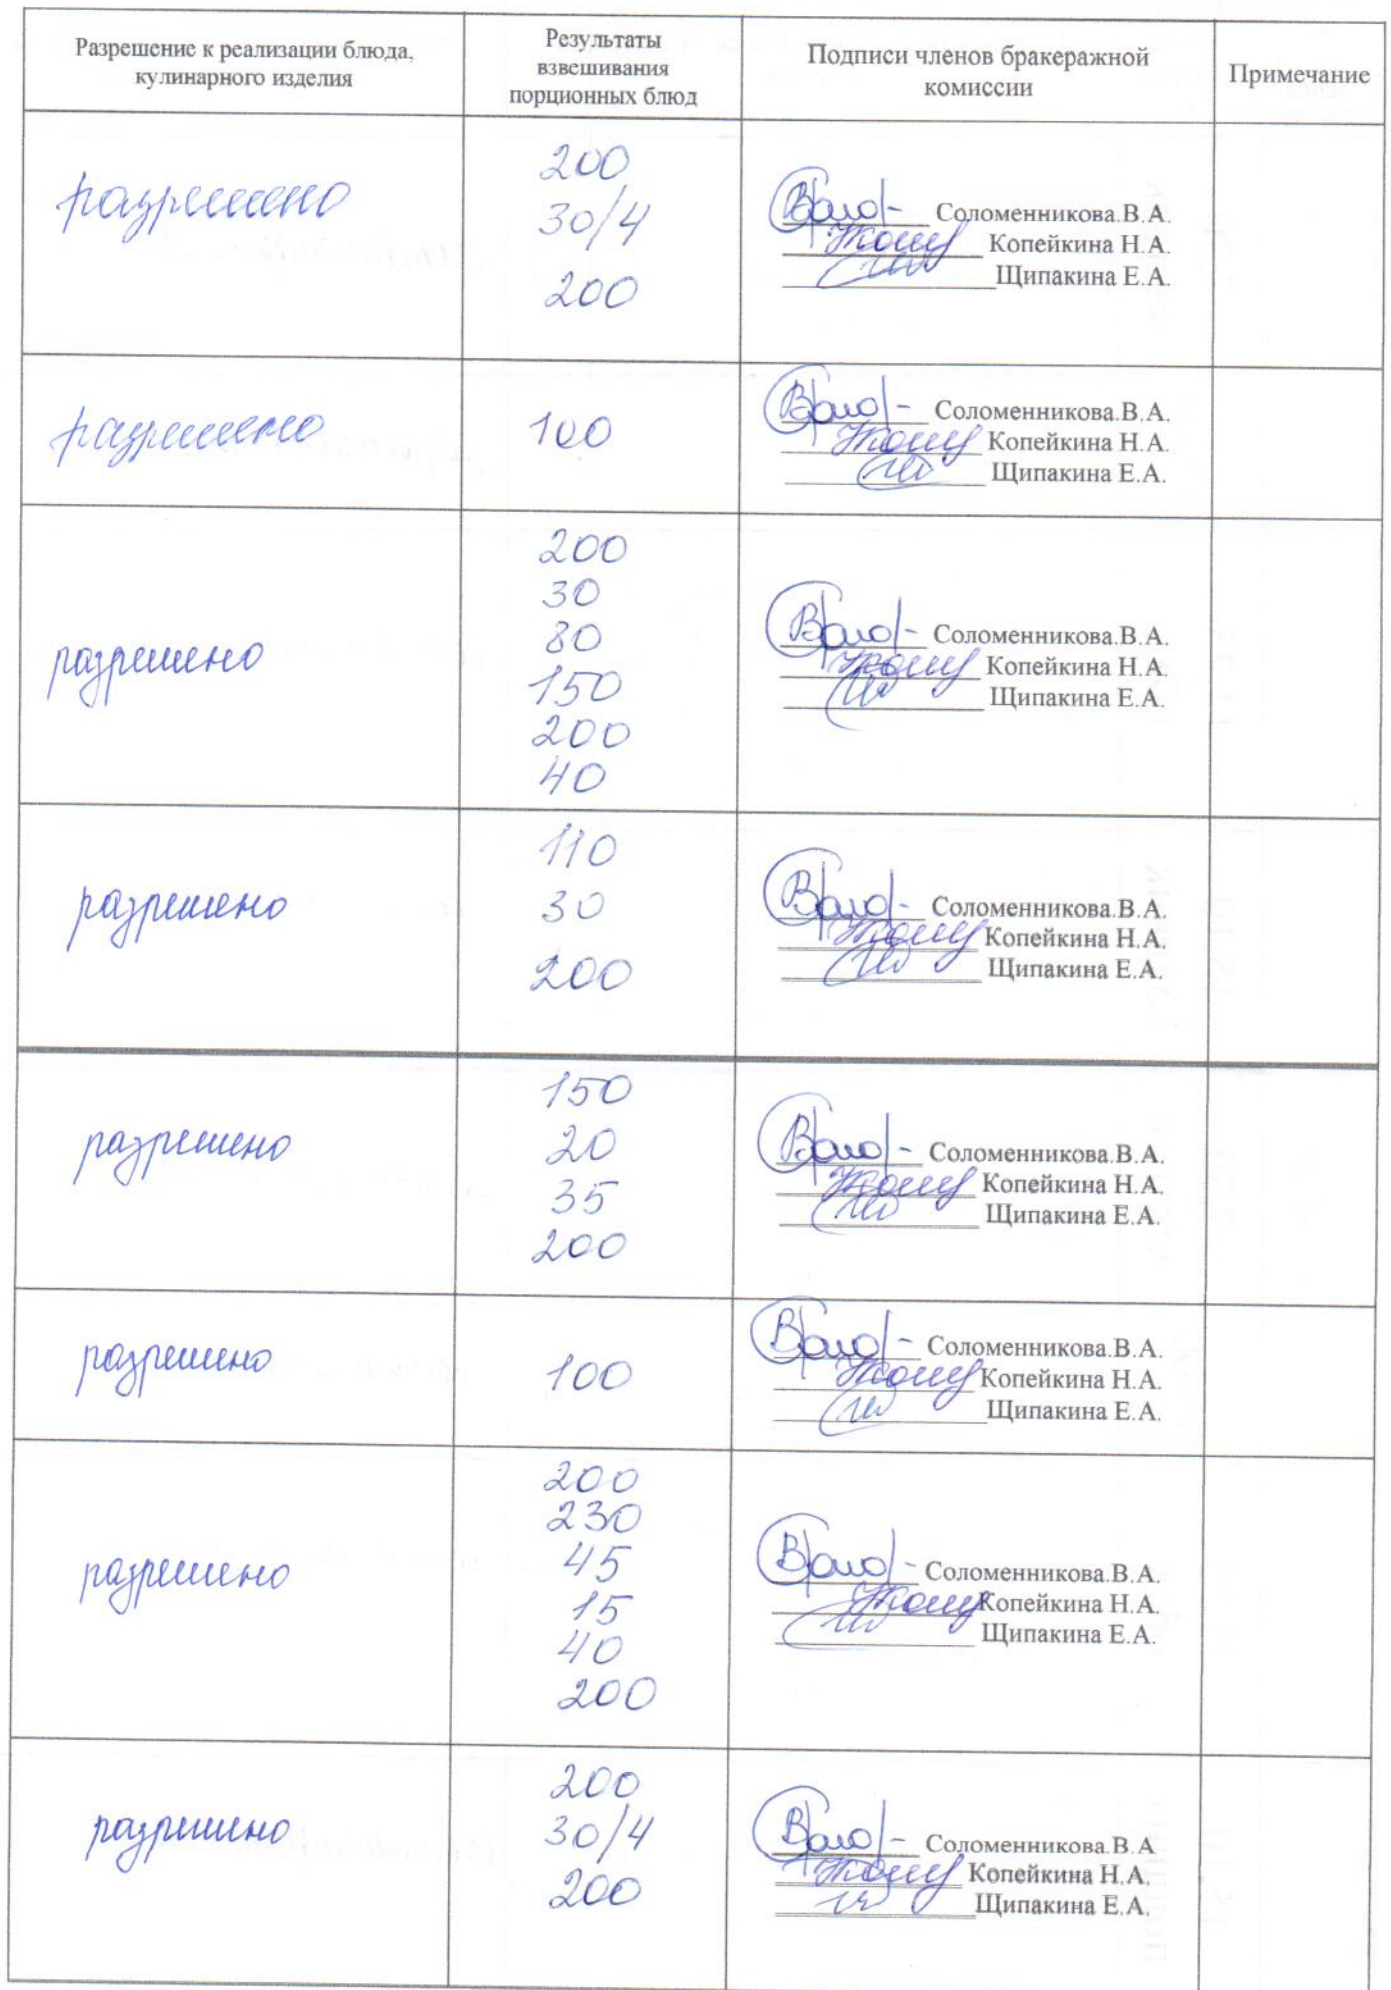 Разрешение к реализации блюда,
кулинарного изделия
Результаты
взвешивания
порционных блюд
Подписи членов бракеражной
комиссии
Примечание
разрешено
200
30/4
200
Соломенникова.В.А.
Копейкина Н.А.
Щипакина Е.А.
разрешено
100
Соломенникова.В.А.
Копейкина Н.А.
Щипакина Е.А.
разрешено
200
30
80
150
200
40
Соломенникова.В.А.
Копейкина Н.А.
Щипакина Е.А.
разрешено
110
30
200
Соломенникова.В.А.
Копейкина Н.А.
Щипакина Е.А.
разрешено
150
20
35
200
Соломенникова.В.А.
Копейкина Н.А.
Щипакина Е.А.
разрешено
100
Соломенникова.В.А.
Копейкина Н.А.
Щипакина Е.А.
разрешено
200
230
45
15
40
200
Соломенникова.В.А.
Копейкина Н.А.
Щипакина Е.А.
разрешено
200
30/4
200
Соломенникова.В.А
Копейкина Н.А.
Щипакина Е.А.